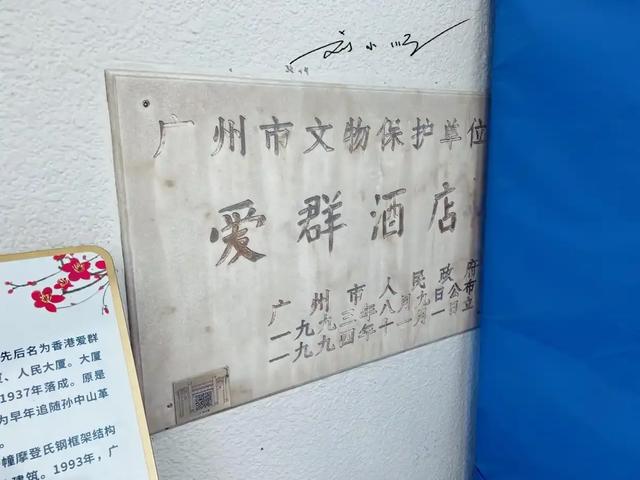 广州市文物保护单位
爱群酒店
广州市人民政府
一九九三年八月九日公布
一九九四年十一月一日立
先后名为香港爱群
、人民大厦。大厦
1937年落成。原是
为早年追随孙中山革
幢摩登氏钢框架结构
建筑。1993年，广